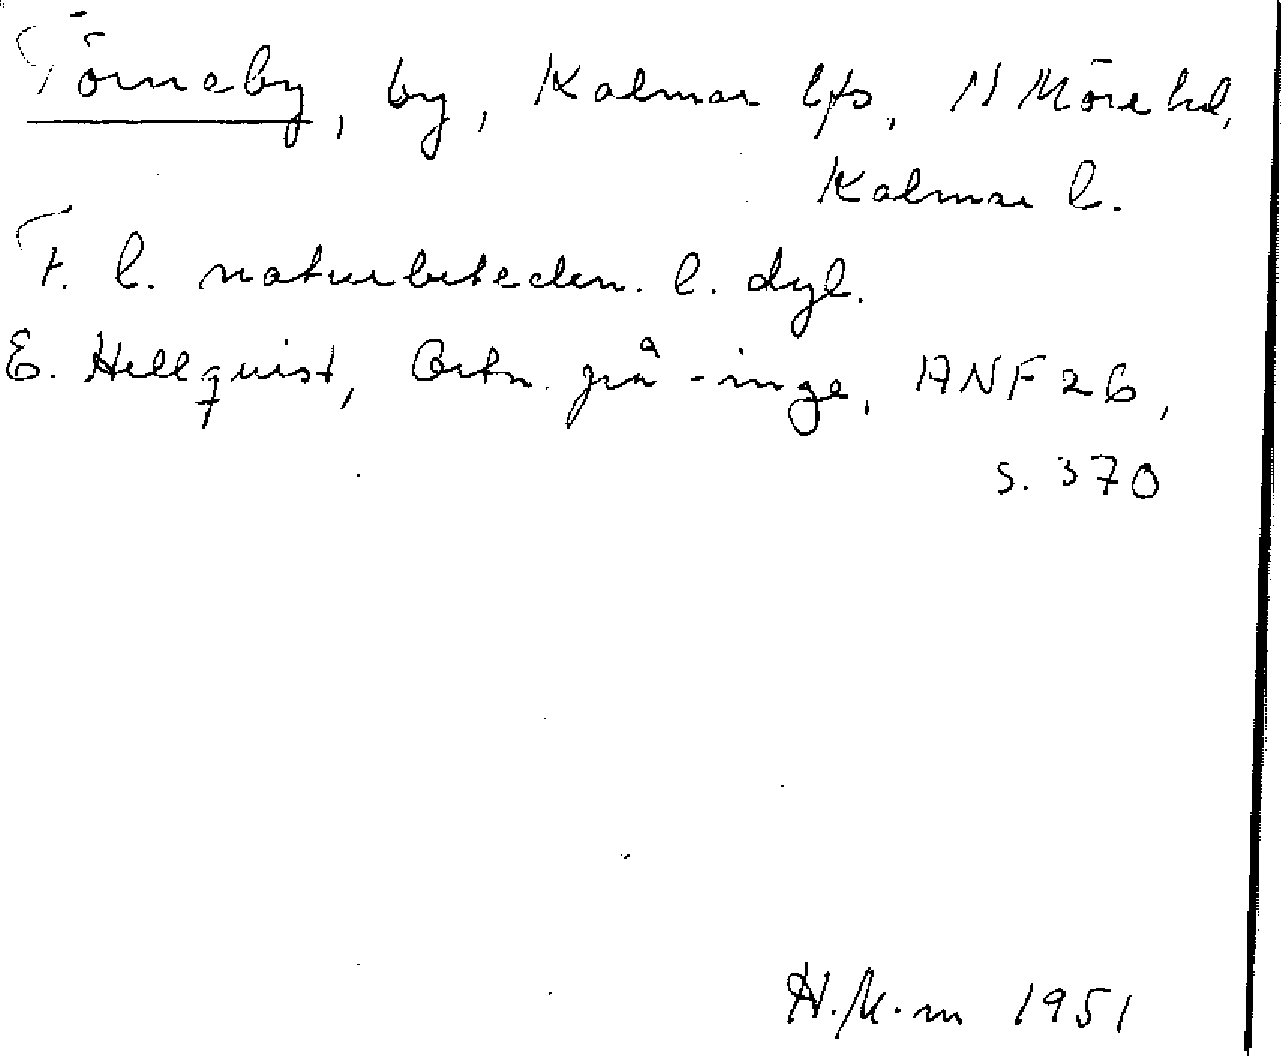 Törneby, by, Kalmar lfs, N Möre hd,
Kalmar l.
F. l. naturbeteckn. l. dyl.
E. Hellquist, Ortn. på -inge, ANF 26,
s. 370
H.M-m 1951